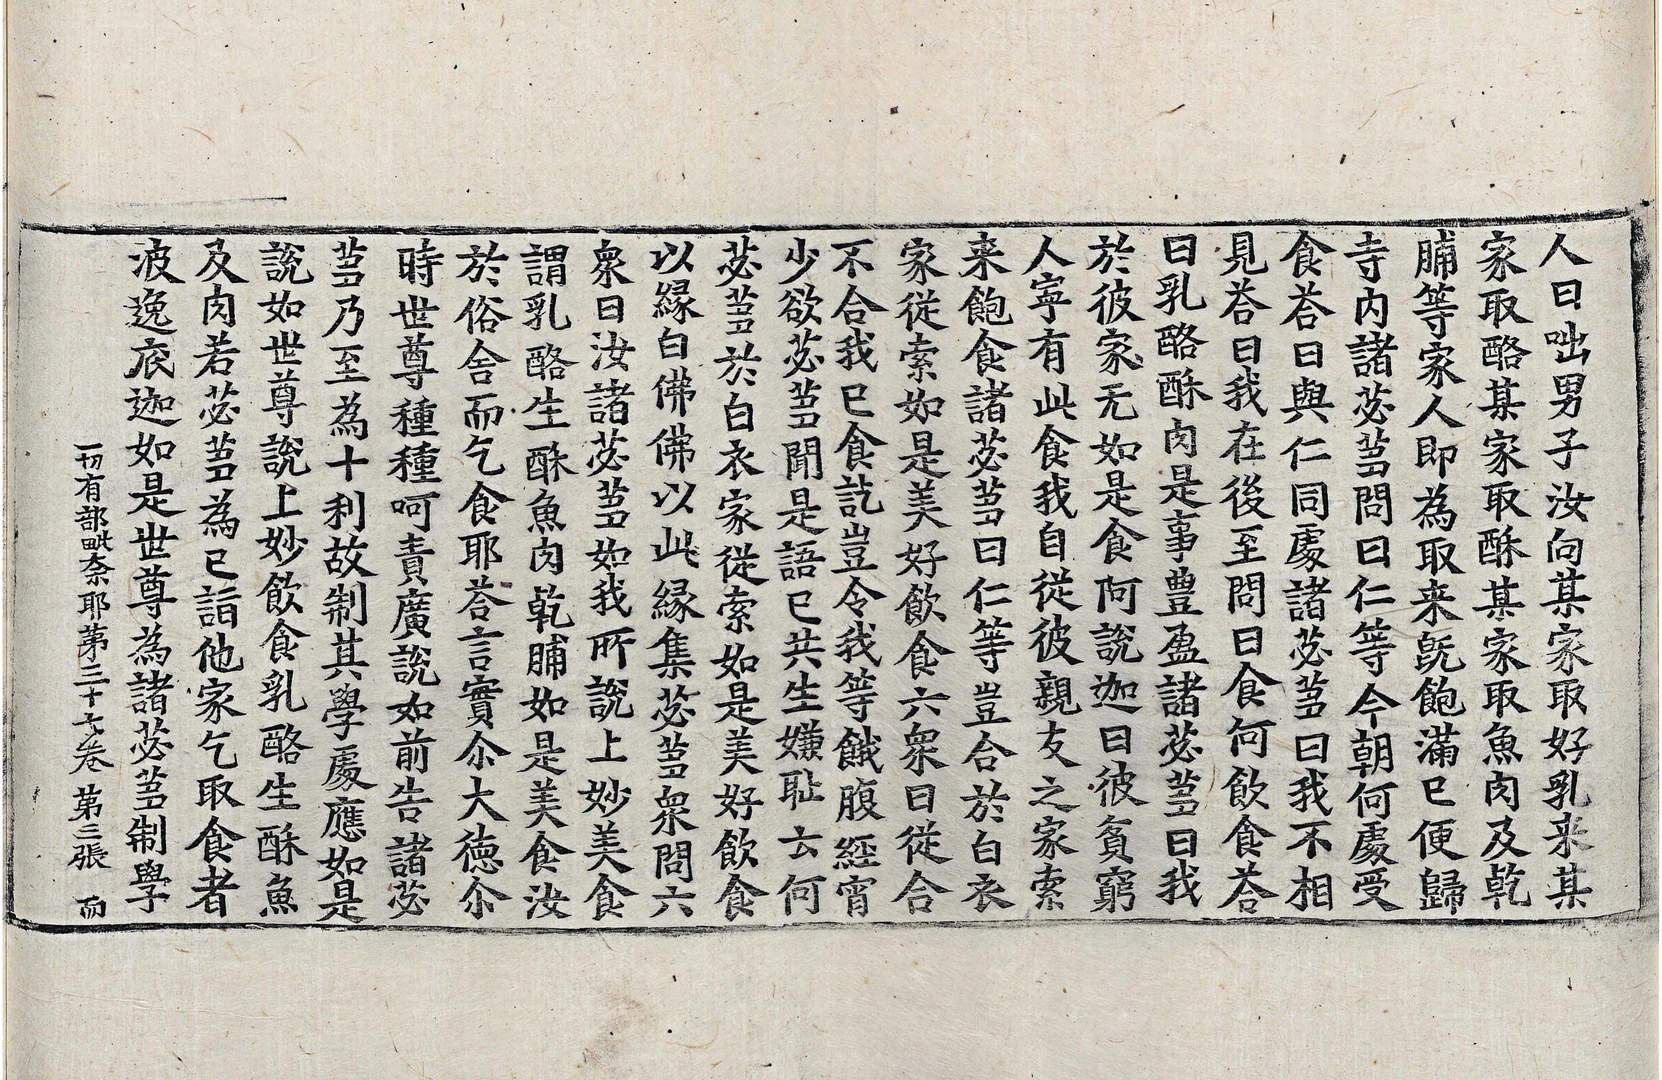 人曰咄男子汝向某家取好乳来某
家取酪某家取酥某家取魚肉及乾
脯等家人即為取来既飽滿已便歸
寺内諸苾芻問曰仁等今朝何處受
食荅曰與仁同處諸苾芻曰我不相
見荅曰我在後至問曰食何飲食荅
曰乳酪酥肉是事豊盈諸苾芻曰我
於彼家无如是食阿說迦曰彼貧窮
人寧有此食我自從彼親友之家索
来飽食諸苾芻曰仁等豈合於白衣
家從索如是美好飲食六衆曰從合
不合我已食訖豈令我等餓腹經宵
少欲苾芻聞是語已共生嫌耻云何
苾芻於白衣家從索如是美好飲食
以緣白佛佛以此緣集苾芻衆問六
衆曰汝諸苾芻如我所說上妙美食
謂乳酪生酥魚肉乾脯如是美食汝
於俗舍而乞食耶荅言實尒大徳尒
時世尊種種呵責廣說如前告諸苾
芻乃至為十利故制其學處應如是
說如世尊說上妙飲食乳酪生酥魚
及肉若苾芻為已詣他家乞取食者
波逸底迦如是世尊為諸苾芻制學
一切有部毗奈耶第三十七卷 第三張 而